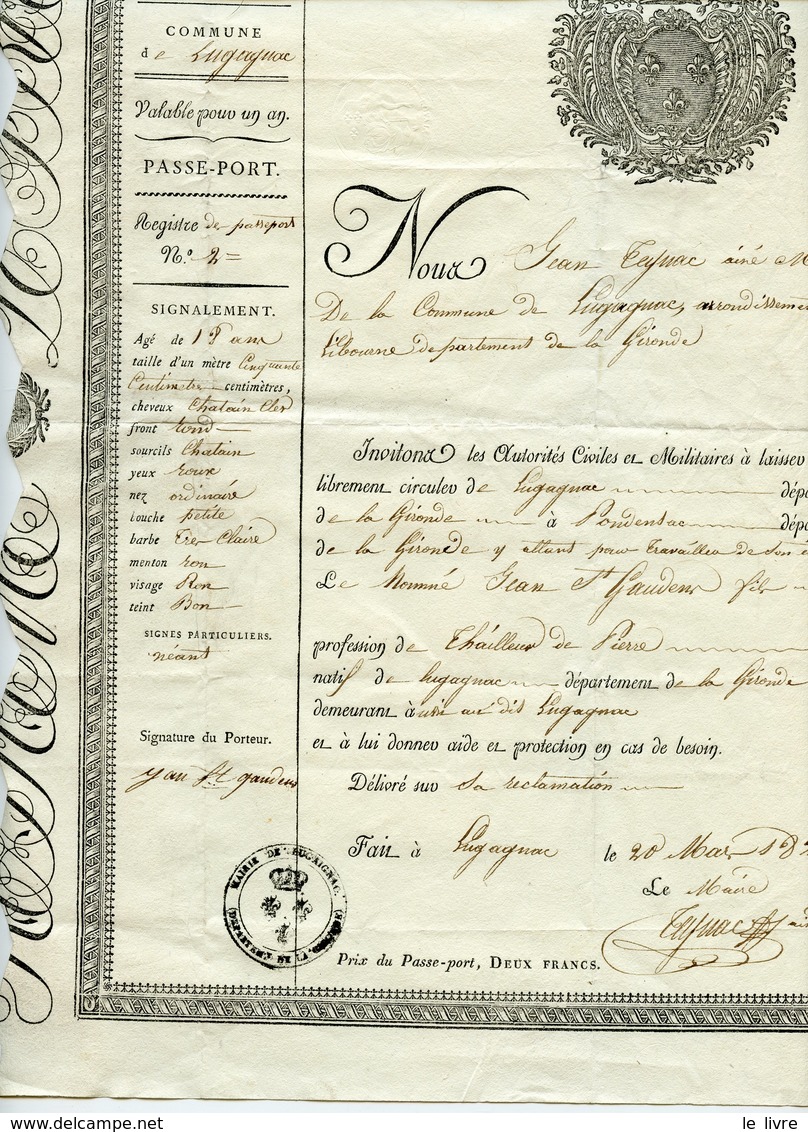 COMMUNE
de Lugagnac
Valable pour un an.
PASSE-PORT.
Registre de passeport
N.º 2
SIGNALEMENT.
Agé de ans
taille d'un mètre Cinquante
Centimetre centimètres,
cheveux Chatain Cler
front rond
sourcils Chatain
yeux roux
nez ordinaire
bouche petite
barbe Tres Claire
menton ron
visage Ron
teint Bon
SIGNES PARTICULIERS.
néant
Signature du Porteur.
yan St gaudens
MAIRIE DE LUGAIGNAC.
(DÉPARTEMENT DE LA GIRONDE)
Nous Jean Teynac ainé M
De la Commune de Lugagnac, arrondisseme
Libourne departement de la Gironde
Invitons les Autorités Civiles et Militaires à laisser
librement circuler de Lugagnac dépa
de la Gironde à Pondensac dépa
de la Gironde y allant pour Travailler de son
Le Nommé Jean St Gaudens fils
profession de Thailleur de Pierre
natif de Lugagnac département de la Gironde
demeurant à au dit Lugagnac
et à lui donner aide et protection en cas de besoin.
Délivré sur sa reclamation
Fait à Lugagnac le 20 Mars 18
Le Maire
Teynac ain
Prix du Passe-port, DEUX FRANCS.
le livre